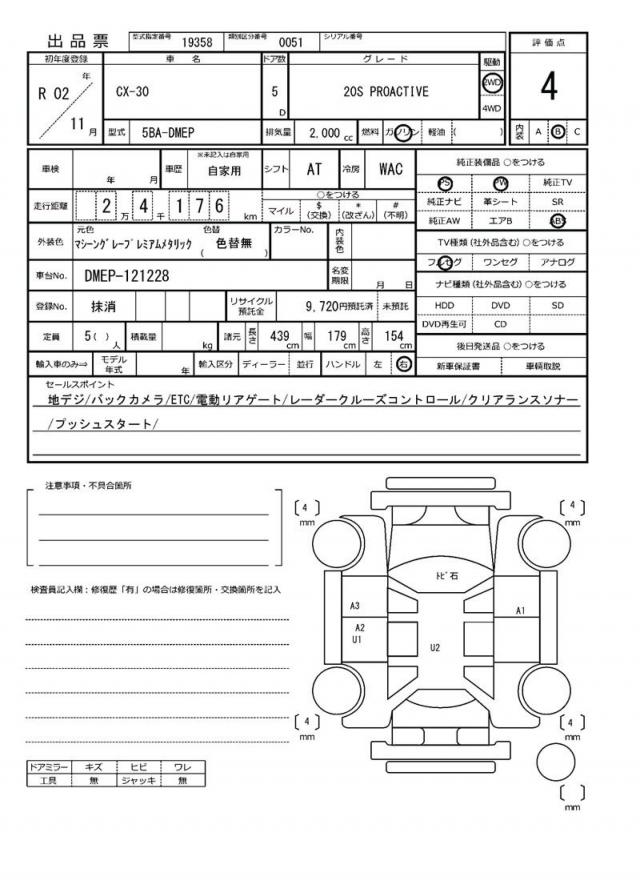 出品票 型式指定番号 19358 類別区分番号 0051 シリアル番号
初年度登録 車名 ドア数 グレード 駆動 評価点
R 02 年 11 月 CX-30 5 D 20S PROACTIVE 2WD 4WD 4
型式 5BA-DMEP 排気量 2,000 cc 燃料 ガソリン 軽油 ( ) 内装 A B C
車検 年 月 車歴 ※未記入は自家用 自家用 シフト AT 冷房 WAC 純正装備品 ○をつける
PS PW 純正TV
走行距離 2 万 4 千 1 7 6 km ○をつける マイル $ (交換) * (改ざん) # (不明) 純正ナビ 革シート SR
純正AW エアB ABS
外装色 元色 マシーングレープレミアムメタリック 色替 ( 色替無 ) カラーNo. 内装色 TV種類 (社外品含む) ○をつける
フルセグ ワンセグ アナログ
車台No. DMEP-121228 名変期限 月 日 ナビ種類 (社外品含む) ○をつける
登録No. 抹消 リサイクル預託金 9,720円預託済 未預託 HDD DVD SD
DVD再生可 CD
定員 5( ) 人 積載量 kg 諸元 長さ 439 cm 幅 179 cm 高さ 154 cm 後日発送品 ○をつける
輸入車のみ⇒ モデル年式 年 輸入区分 ディーラー 並行 ハンドル 左 右 新車保証書 車輌取説
セールスポイント
地デジ/バックカメラ/ETC/電動リアゲート/レーダークルーズコントロール/クリアランスソナー
/プッシュスタート/
注意事項・不具合箇所
検査員記入欄：修復歴「有」の場合は修復箇所・交換箇所を記入
[ 4 ] mm
[ 4 ] mm
トビ石
A3
A1
A2
U1
U2
[ 4 ] mm
[ 4 ] mm
[ ] mm
ドアミラー キズ ヒビ ワレ
工具 無 ジャッキ 無